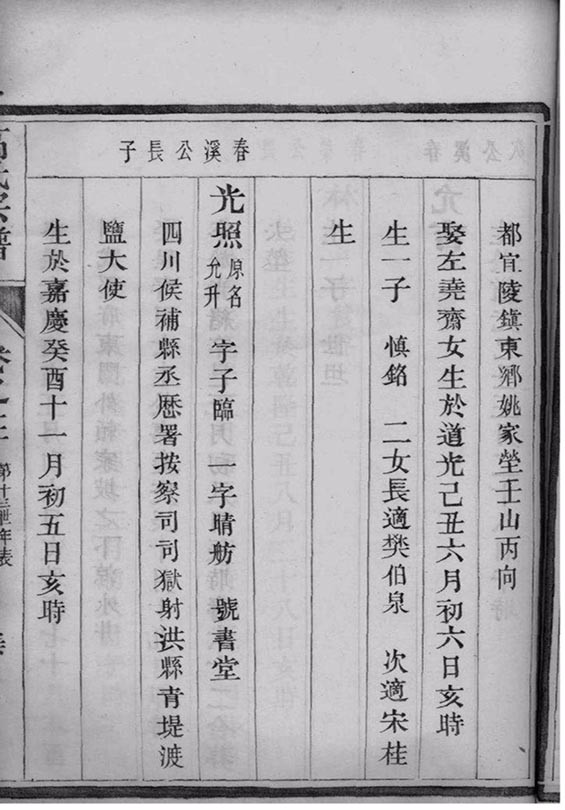 春溪公長子
都宜陵鎮東鄉姚家塋壬山丙向
娶左堯齋女生於道光己丑六月初六日亥時
生一子 慎銘 二女長適樊伯泉 次適宋桂
生
光照原名允升 字子臨 一字晴舫 號書堂
四川候補縣丞歷署按察司司獄射洪縣青堤渡
鹽大使
生於嘉慶癸酉十一月初五日亥時
第十三世年表